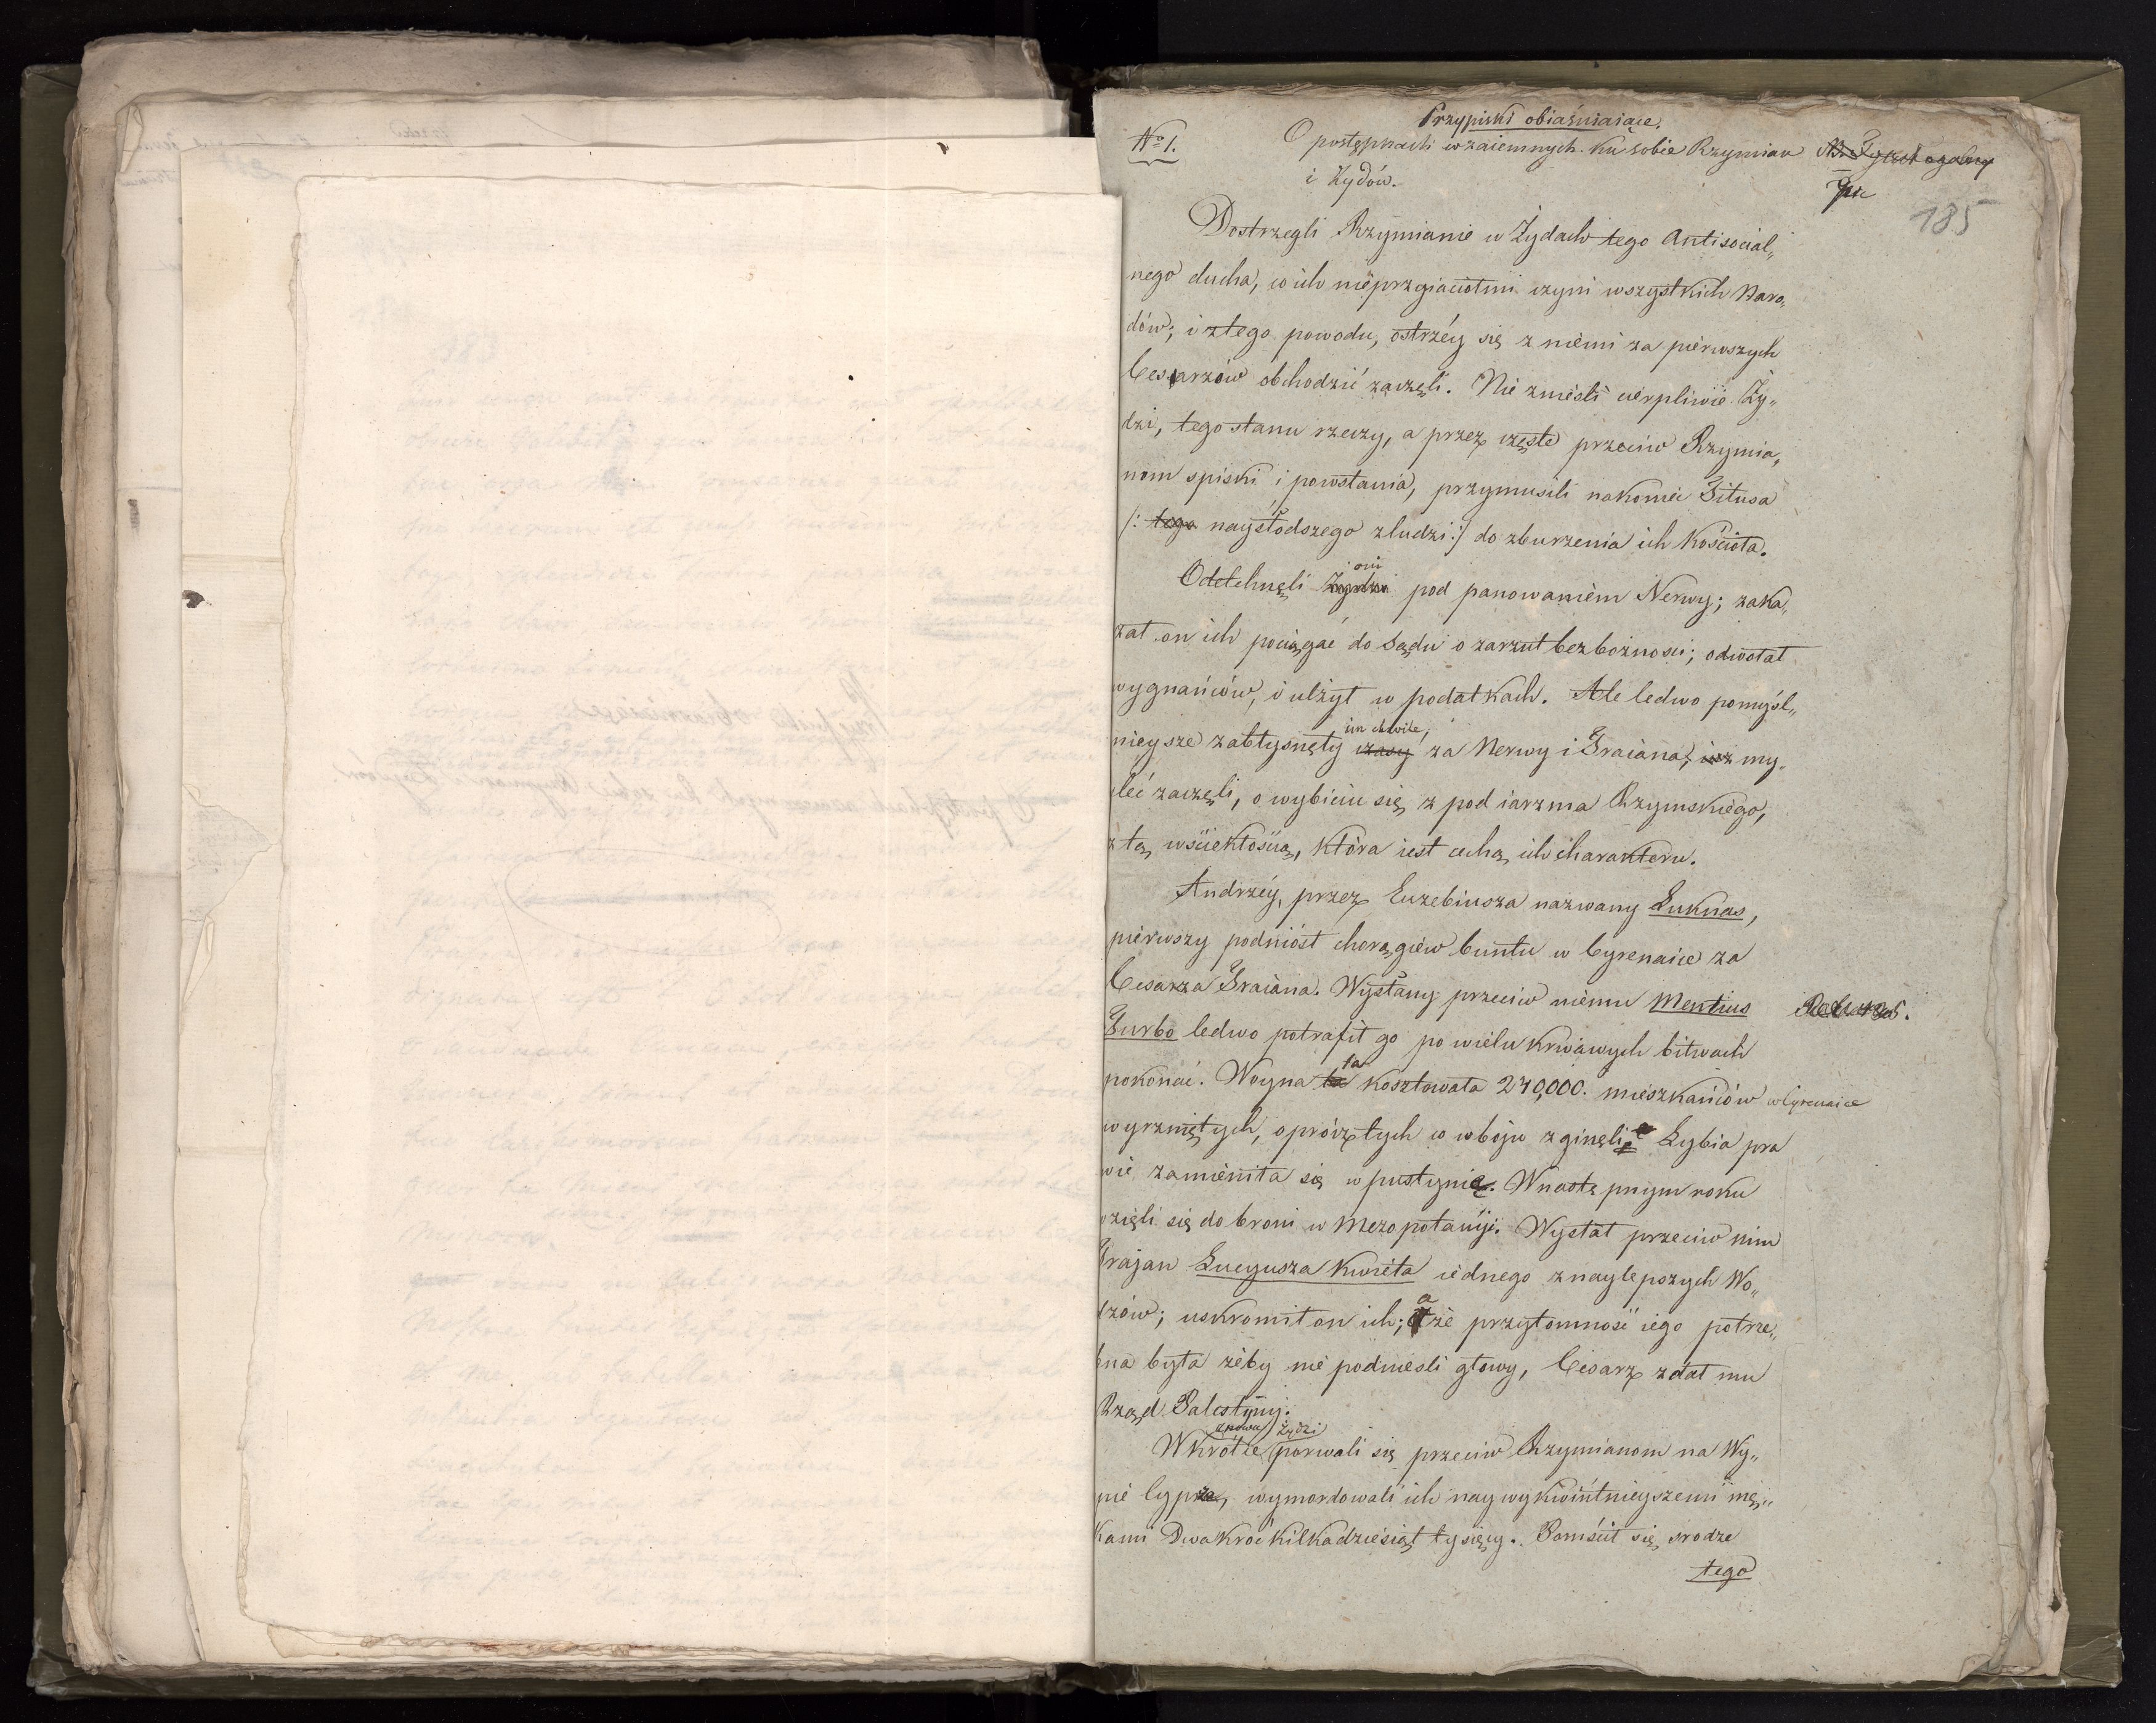 Przypiski obiaśniaiące.
No 1.
O postępkach wzaiemnych ku sobie Rzymian
i Żydów.
185
Dostrzegli Rzymianie w Żydach tego Antisocial„
nego ducha, co ich nieprzyiaciołmi czyni wszystkich Naro„
dów; i ztego powodu, ostrzéy się z niemi za piérwszych
Cesarzów obchodzić zaczęli. Nie znieśli cierpliwie Ży„
dzi, tego stanu rzeczy, a przez częste przeciw Rzymia„
nom spiski i powstania, przymusili nakoniec Titusa
/: tego naysłodszego zludzi :/ do zburzenia ich Kościoła.
Odetchnęli Żydzi oni pod panowaniem Nerwy; zaka„
zał on ich pociągać do Sądu o zarzut bezbożnosci; odwołał
wygnańców, i ulżył w podatkach. Ale ledwo pomyśl„
nieysze zabłysnęły czasy im chwile, za Nerwy i Traiana, my„
śleć zaczęli, o wybiciu się z pod iarzma Rzymskiego,
z tą wściekłością, która iest cechą ich charakteru.
Andrzéy, przez Euzebiusza nazwany Luknas,
piérwszy podniósł chorągiew buntu w Cyrenaice za
Cesarza Traiana. Wysłany przeciw niemu Mentius
Turbo ledwo potrafił go po wielu krwawych bitwach
pokonać. Woyna ta kosztowała 240,000. mieszkańców w Cyrenaice
wyrzniętych, oprócz tych co w boju zginęli, Lybia pra
wie zamieniła się w pustynię. W następnym roku
wzięli się do broni w Mezopotamyi. Wysłał przeciw nim
Trajan Lucyusza Kwieta iednego z naylepszych Wo„
dzów; uskromił on ich; a że przytomność iego potrze„
bna była żeby nie podnieśli głowy, Cesarz zdał mu
Rząd Palestyny.
Wkrótce znowu Żydzi porwali się przeciw Rzymianom na Wy„
spie Cypr, wymordowali ich naywykwintnieyszemi mę„
kami Dwakroć kilkadziesiąt tysięcy. Pomścił się srodze
tego